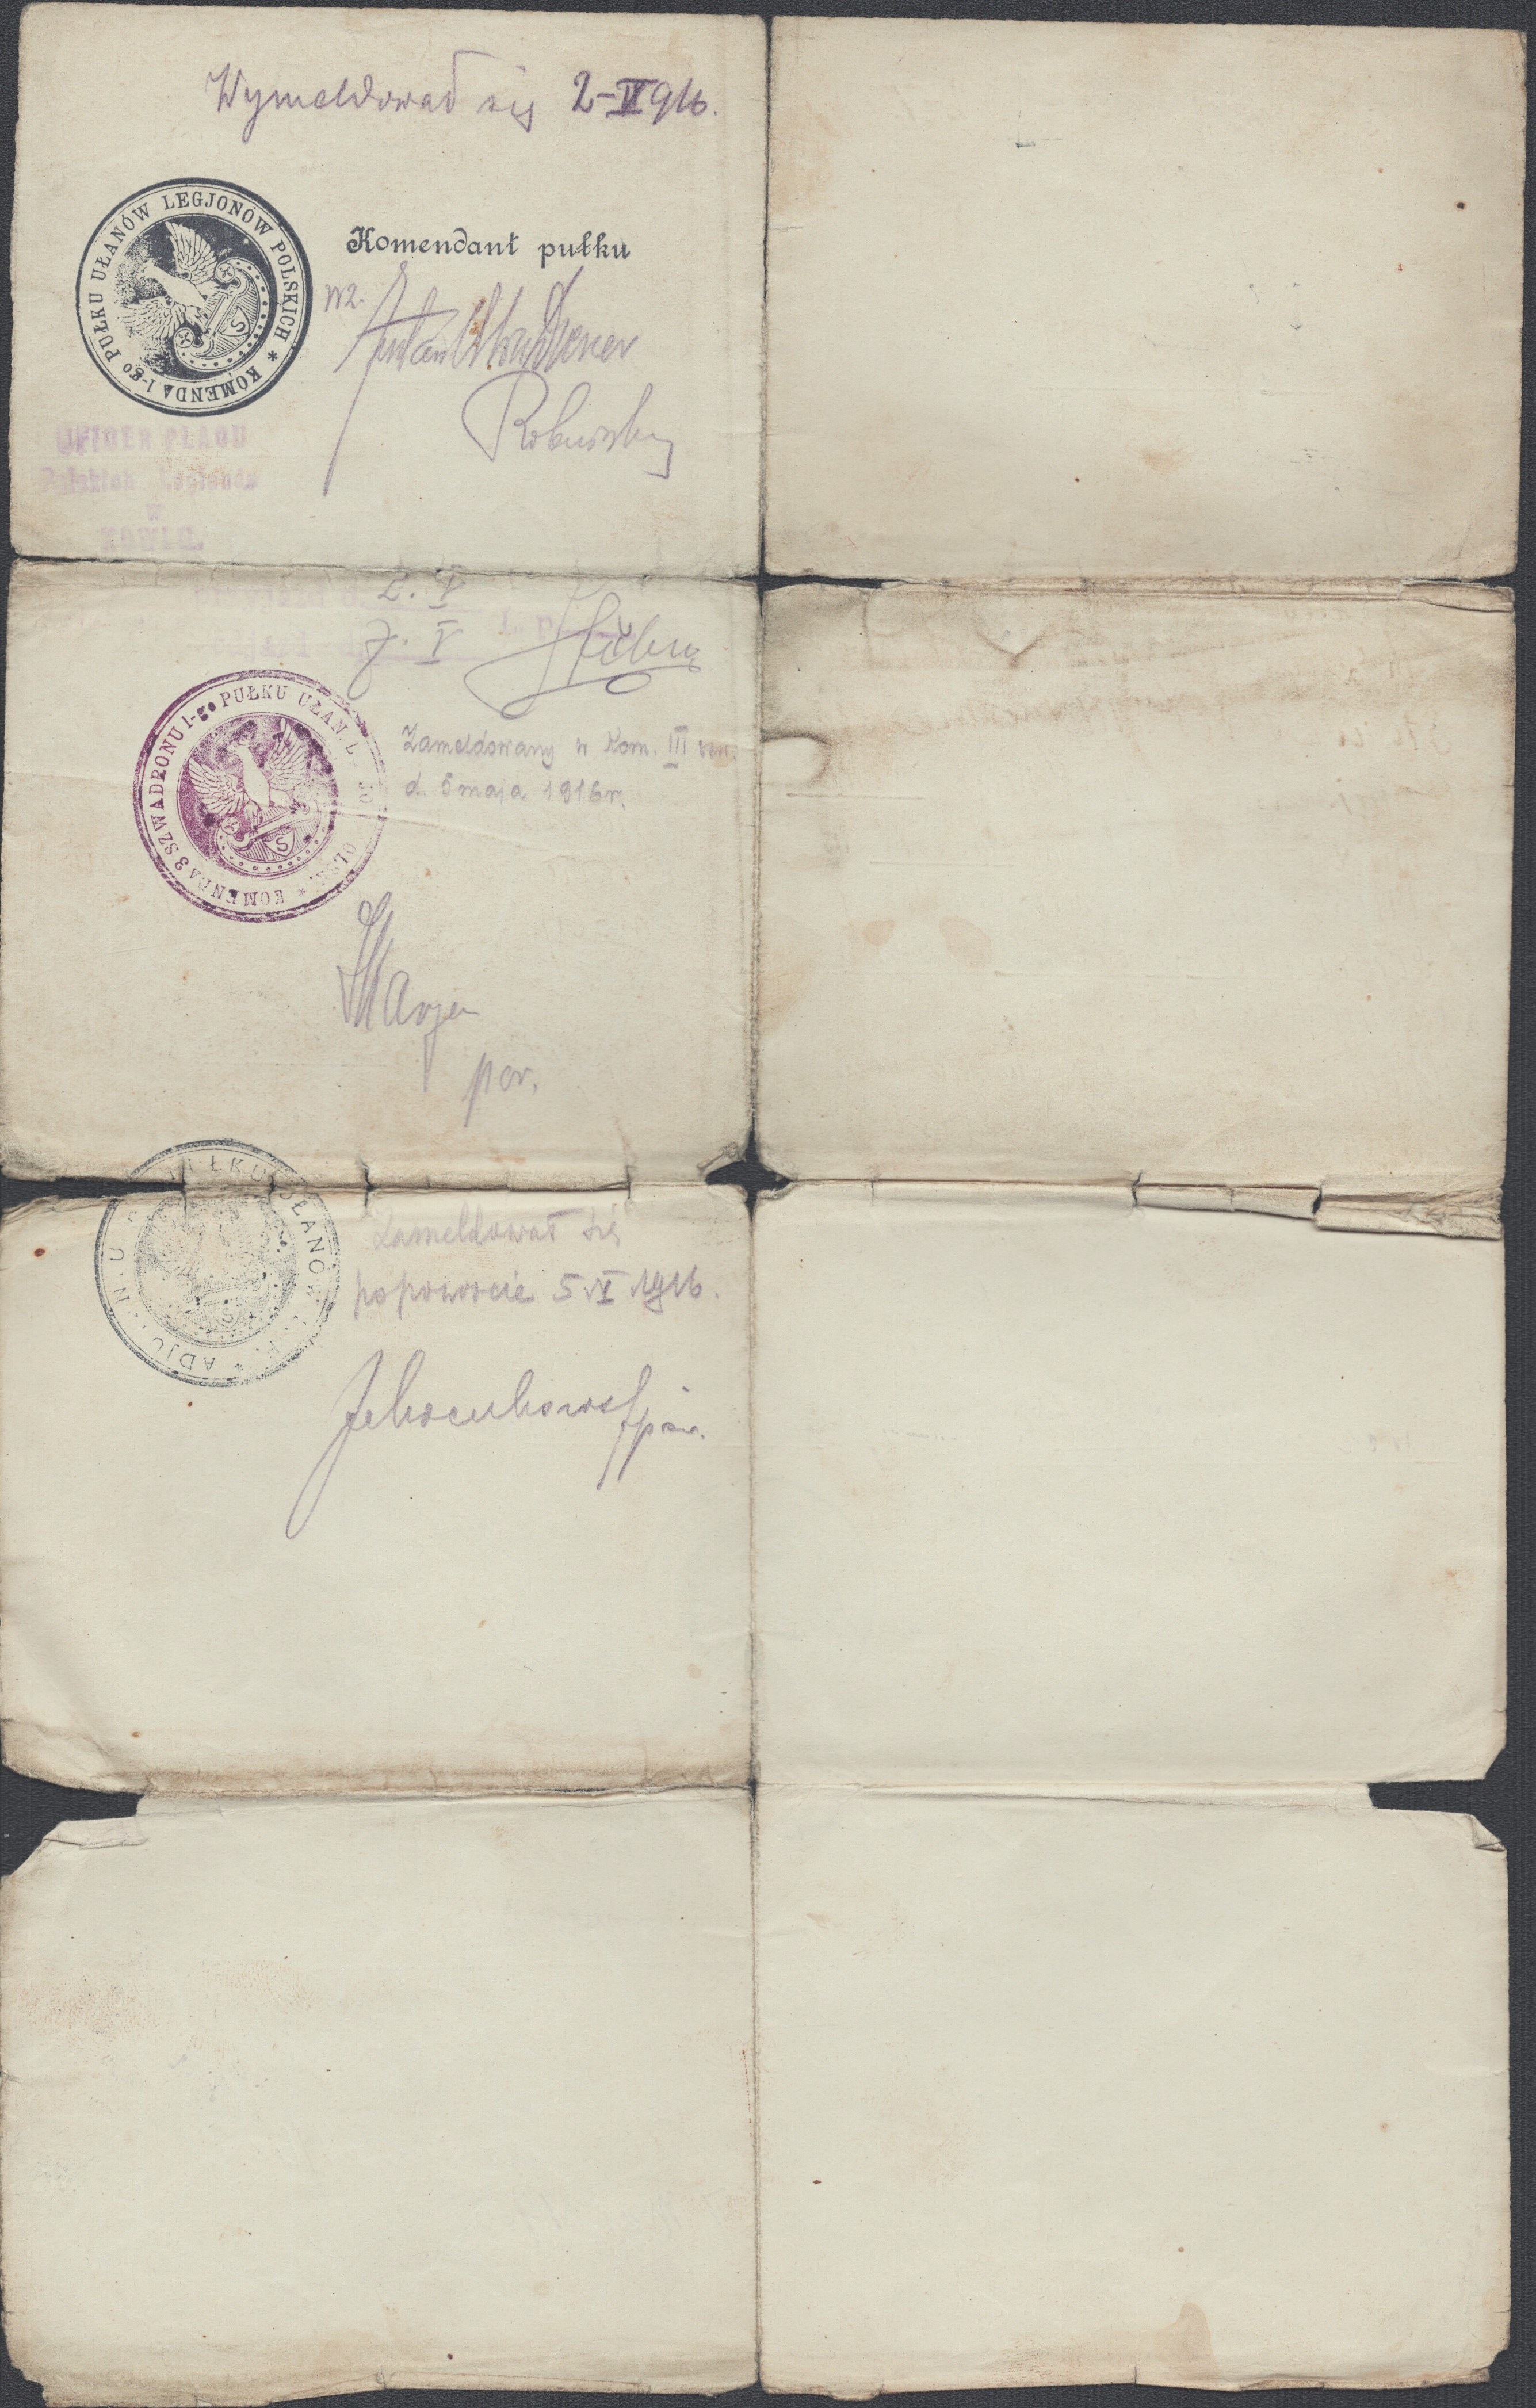 Wymeldował się 2-V 916.
KOMENDA 1-go PUŁKU UŁANÓW LEGJONÓW POLSKICH *
S
Komendant pułku
wz.
OFICER PLACU
Polskich Legionów
w
KOWLU.
2. V
7. V
KOMENDA 3 SZWADRONU 1-go PUŁKU UŁAN
S
Zameldowany w Kom. III
d. 5 maja 1916 r.
por.
PUŁKU UŁANÓW
ADJU
S
Zameldował się
po powrocie 5 VI 1916.